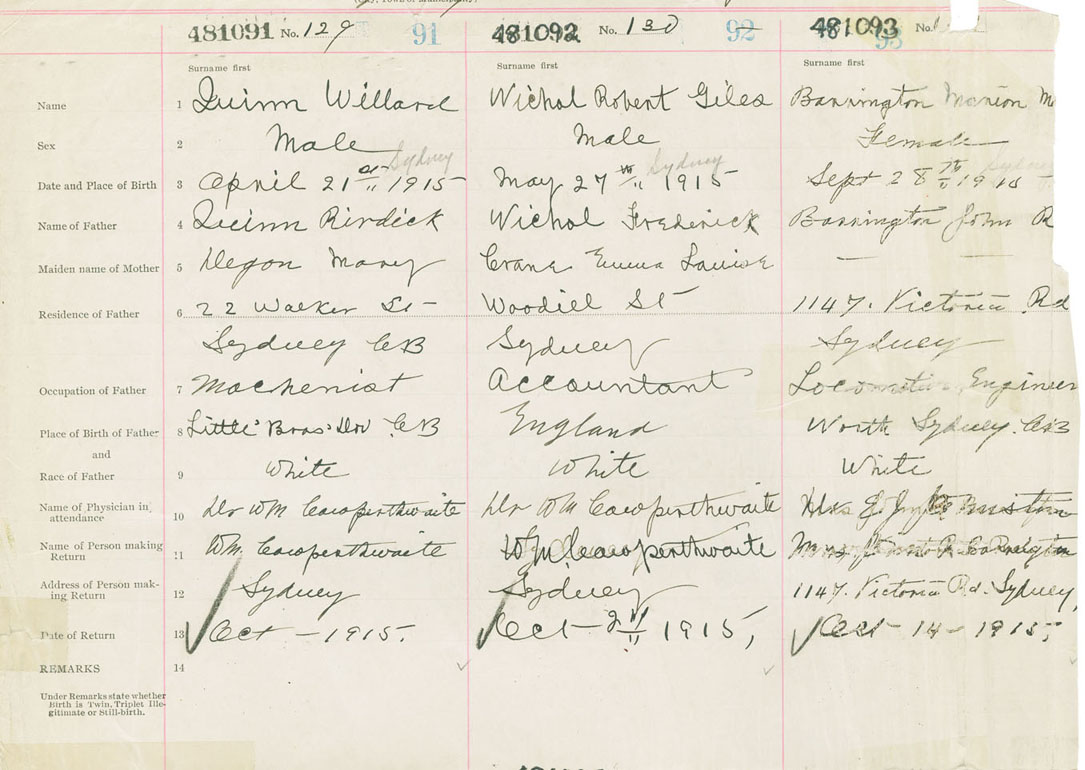 481091 No. 129 91 481092 No. 130 92 481093 No. 93
Surname first Surname first Surname first
Name 1 Quinn Willard Nichol Robert Giles Barrington Marion
Sex 2 Male Male Female
Sydney Sydney Sydney
Date and Place of Birth 3 April 21st 1915 May 27th 1915 Sept 28th 1915
Name of Father 4 Quinn Rirdick Nichol Frederick Barrington John R
Maiden name of Mother 5 Degon Mary Crane Emma Louise — —
Residence of Father 6 22 Walker St Woodill St 1147. Victoria Rd
Sydney CB Sydney Sydney
Occupation of Father 7 Machenist Accountant Locomotive Engineer
Place of Birth of Father 8 Little Bras Dor CB England North Sydney. CB
and
Race of Father 9 White White White
Name of Physician in attendance 10 Dr WM Cowperthwaite Dr WM Cowperthwaite
Name of Person making Return 11 WM. Cowperthwaite WM. Cowperthwaite Mrs R Barrington
Address of Person making Return 12 Sydney Sydney 1147. Victoria Rd. Sydney,
Date of Return 13 Oct — 1915. Oct 2nd 1915, Oct 14 — 1915.
REMARKS 14
Under Remarks state whether
Birth is Twin, Triplet Ille-
gitimate or Still-birth.